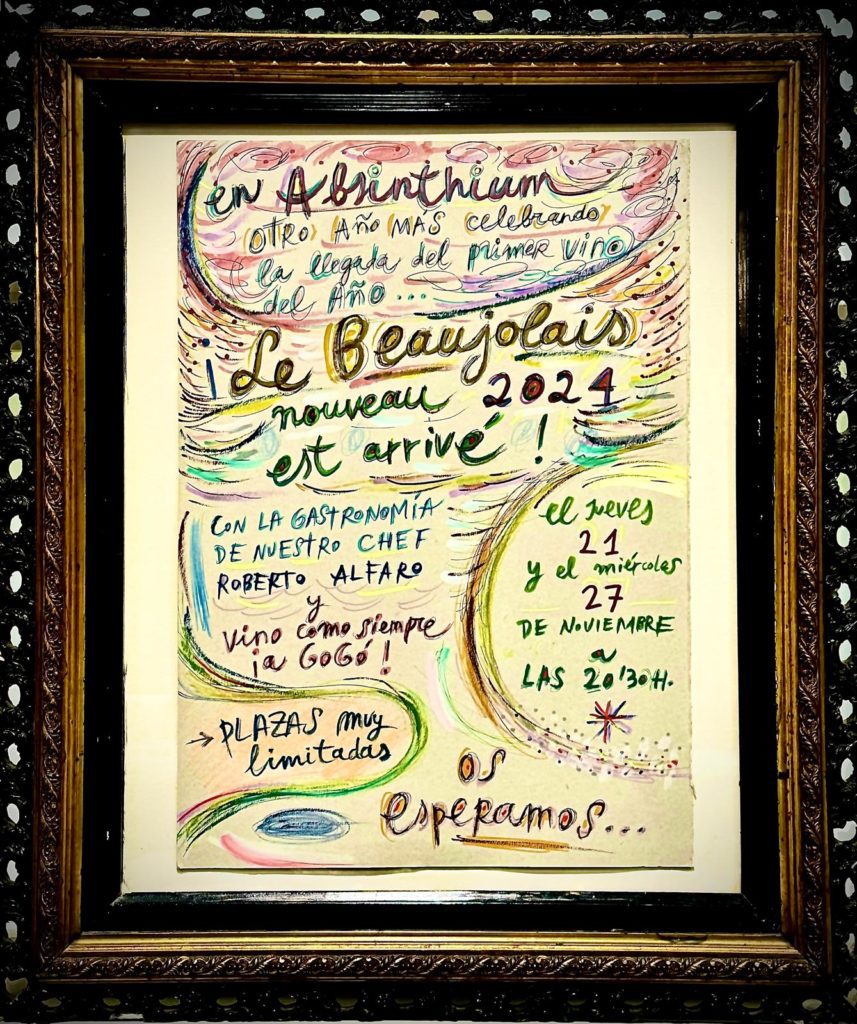 en Absinthium
OTRO AÑO MÁS celebrando
la llegada del primer vino
del Año...
¡Le Beaujolais
nouveau 2024
est arrivé !
CON LA GASTRONOMÍA
DE NUESTRO CHEF
ROBERTO ALFARO
y
vino como siempre
¡a GoGó!
→ PLAZAS muy
limitadas
el jueves
21
y el miércoles
27
DE NOVIEMBRE
a
LAS 20'30H.
os
esperamos...